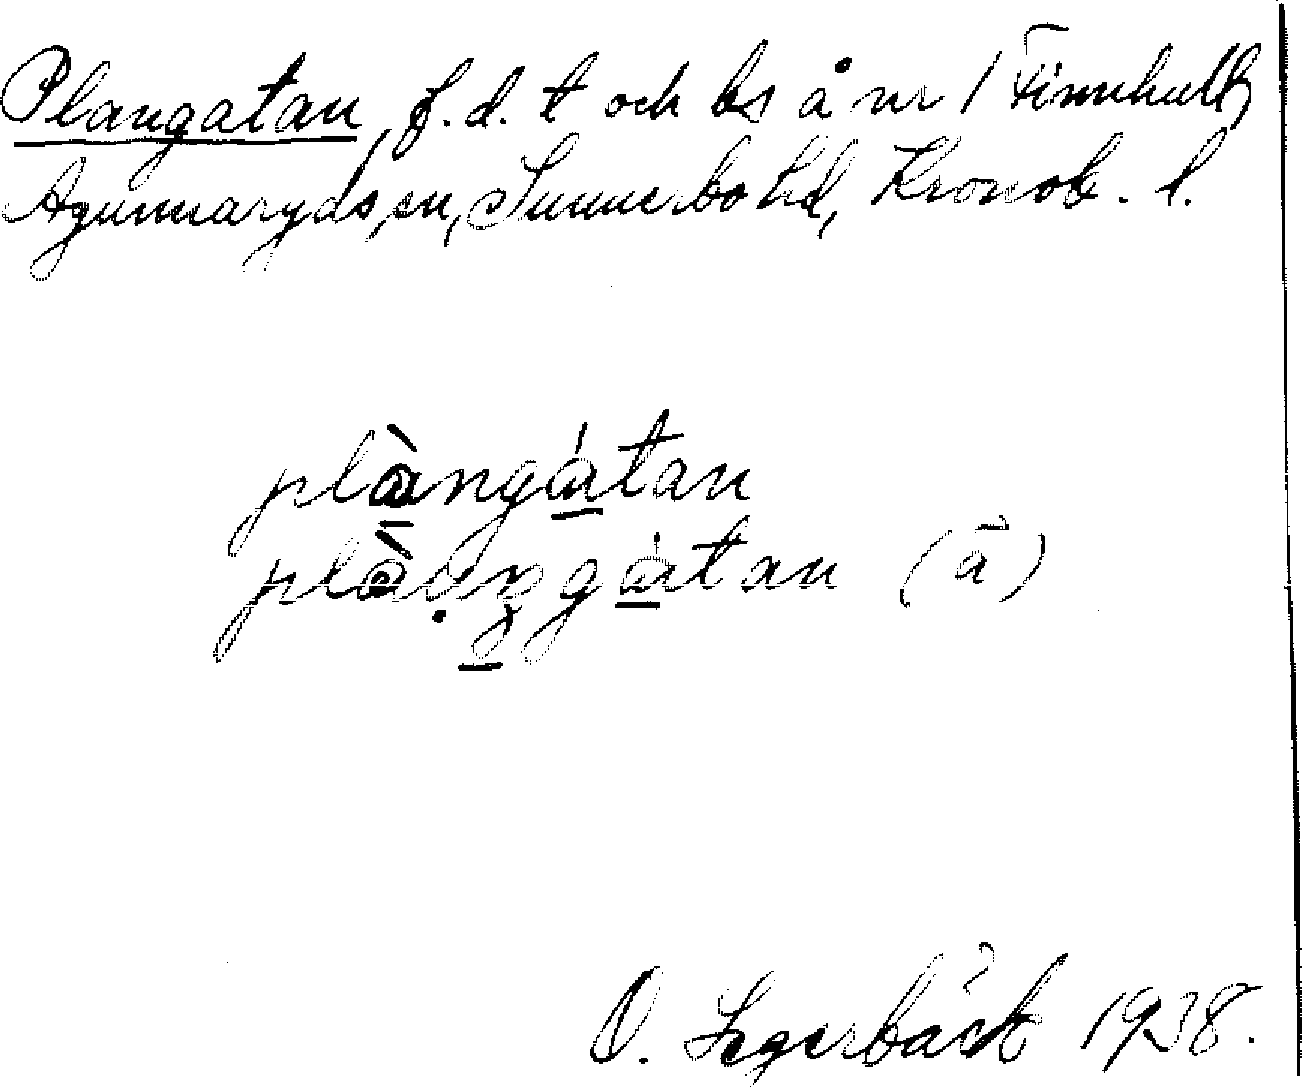 Plangatan, f.d. t och bs å nr 1 Finnhult,
Agunnaryds sn, Sunnerbo hd, Kronob. l.
plàngátan
gátan (ā)
O. Segerbäck 1938.